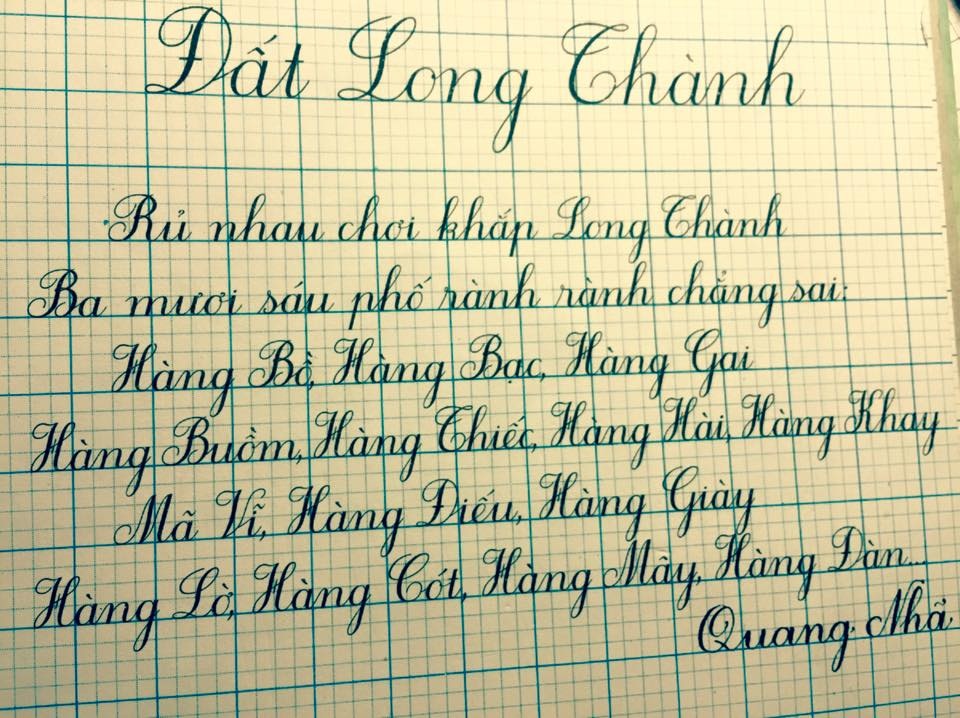 Đất Long Thành
Rủ nhau chơi khắp Long Thành
Ba mươi sáu phố rành rành chẳng sai:
Hàng Bồ, Hàng Bạc, Hàng Gai
Hàng Buồm, Hàng Thiếc, Hàng Hài, Hàng Khay
Mã Vĩ, Hàng Điếu, Hàng Giày
Hàng Lờ, Hàng Cót, Hàng Mây, Hàng Đàn...
Quang Nhã